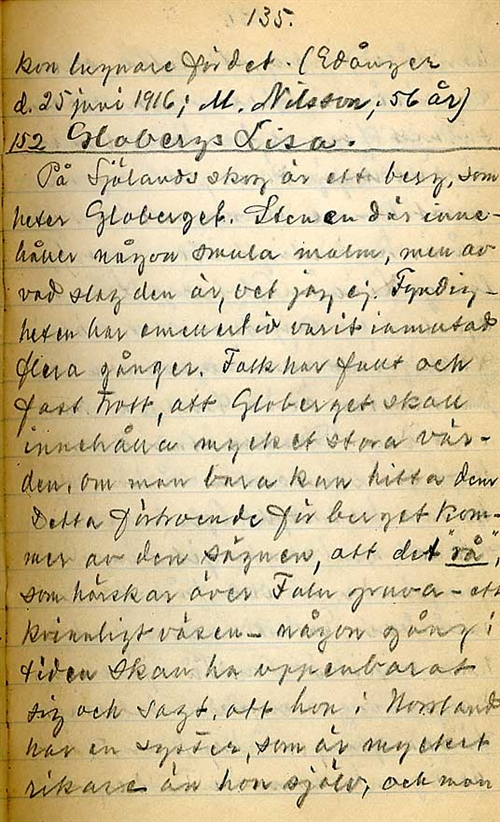 135.
kom lugnare för det. (Edånger
d. 25 juni 1916; M. Nilsson, 56 år)
152 Globergs Lisa.
På Själandsskog är ett berg, som
heter Globerget. Stenen där inne-
håller någon smula malm, men av
vad slag den är, vet jag ej. Fyndig-
heten har emellertid varit inmutad
flera gånger. Folk har fullt och
fast trott, att Globerget skall
innehålla mycket stora vär-
den, om man bara kan hitta dem
Detta förtroende för berget kom-
mer av den sägnen, att det "rå",
som härskar över Falu gruva – ett
kvinnligt väsen – någon gång i
tiden skall ha uppenbarat
sig och sagt, att hon i Norrland
har en syster, som är mycket
rikare än hon själv, och man